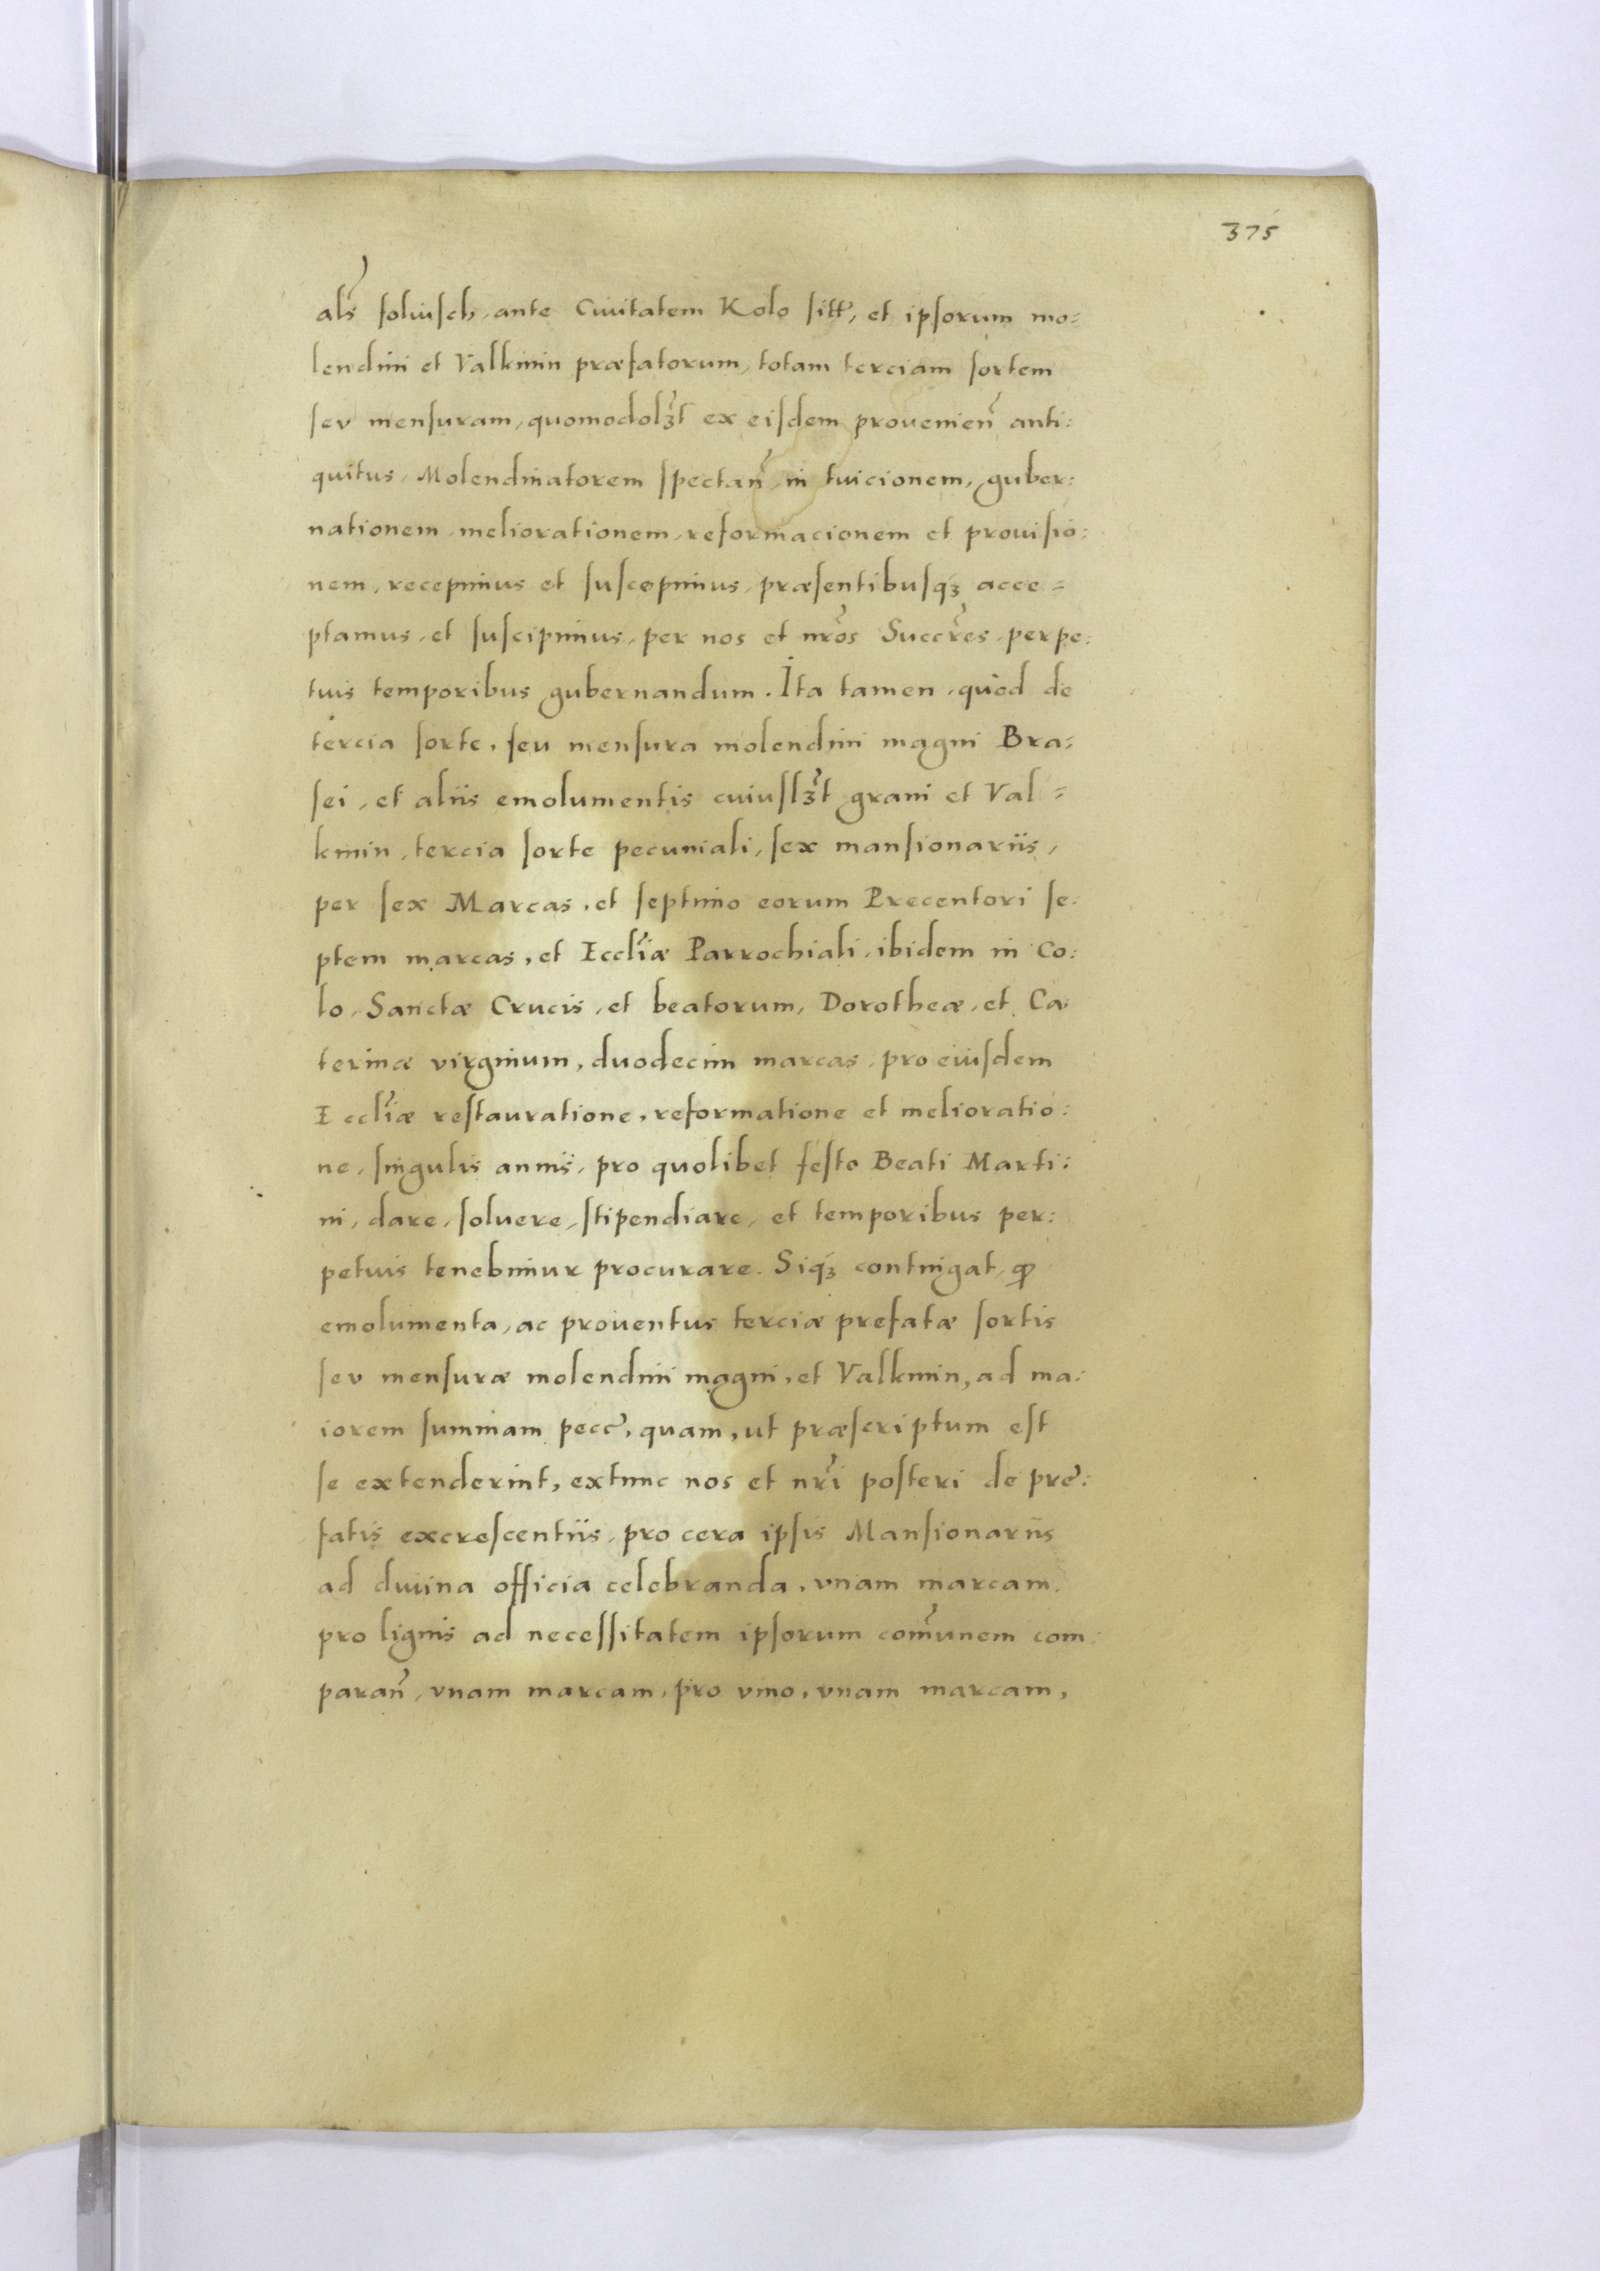 375
als̃ foluſch, ante Ciuitatem Kolo ſitt̃, et ipſorum mo:
lendini et Valkmin præfatorum, totam terciam ſortem
ſev menſuram, quomodolꝫt̃ ex eiſdem prouenien̄ anti:
quitus, Molendinatorem ſpectan̄, in tuicionem, guber:
nationem, meliorationem, reformacionem et prouiſio:
nem, recepimus et ſuſcepimus, præſentibuſqꝫ acce=
ptamus, et ſuſcipimus, per nos et nr̃os Succr̃es, perpe:
tuis temporibus gubernandum. Ita tamen, quod de
tercia ſorte, ſeu menſura molendini magni Bra:
ſei, et aliis emolumentis cuiuſlꝫt̃ grani et Val=
kmin, tercia ſorte pecuniali, ſex manſionariis,
per ſex Marcas, et ſeptimo eorum Precentori ſe:
ptem marcas, et Eccl̃iæ Parrochiali, ibidem in Co:
lo, Sanctæ Crucis, et beatorum, Dorotheæ, et Ca:
terinæ virginum, duodecim marcas, pro eiuſdem
Eccl̃iæ reſtauratione, reformatione et melioratio:
ne, ſingulis annis, pro quolibet feſto Beati Marti:
ni, dare, ſoluere, ſtipendiare, et temporibus per:
petuis tenebimur procurare. Siqꝫ contingat, ꝙ
emolumenta, ac prouentus terciæ prefatæ ſortis
ſev menſuræ molendini magni, et Valkmin, ad ma:
iorem ſummam pecc̃, quam, ut præſcriptum eſt
ſe extenderint, extunc nos et nr̃i poſteri de pre:
fatis excreſcentiis, pro cera ipſis Manſionariis
ad diuina officia celebranda, vnam marcam,
pro lignis ad neceſſitatem ipſorum com̃unem com:
paran̄, vnam marcam, pro vino, vnam marcam,